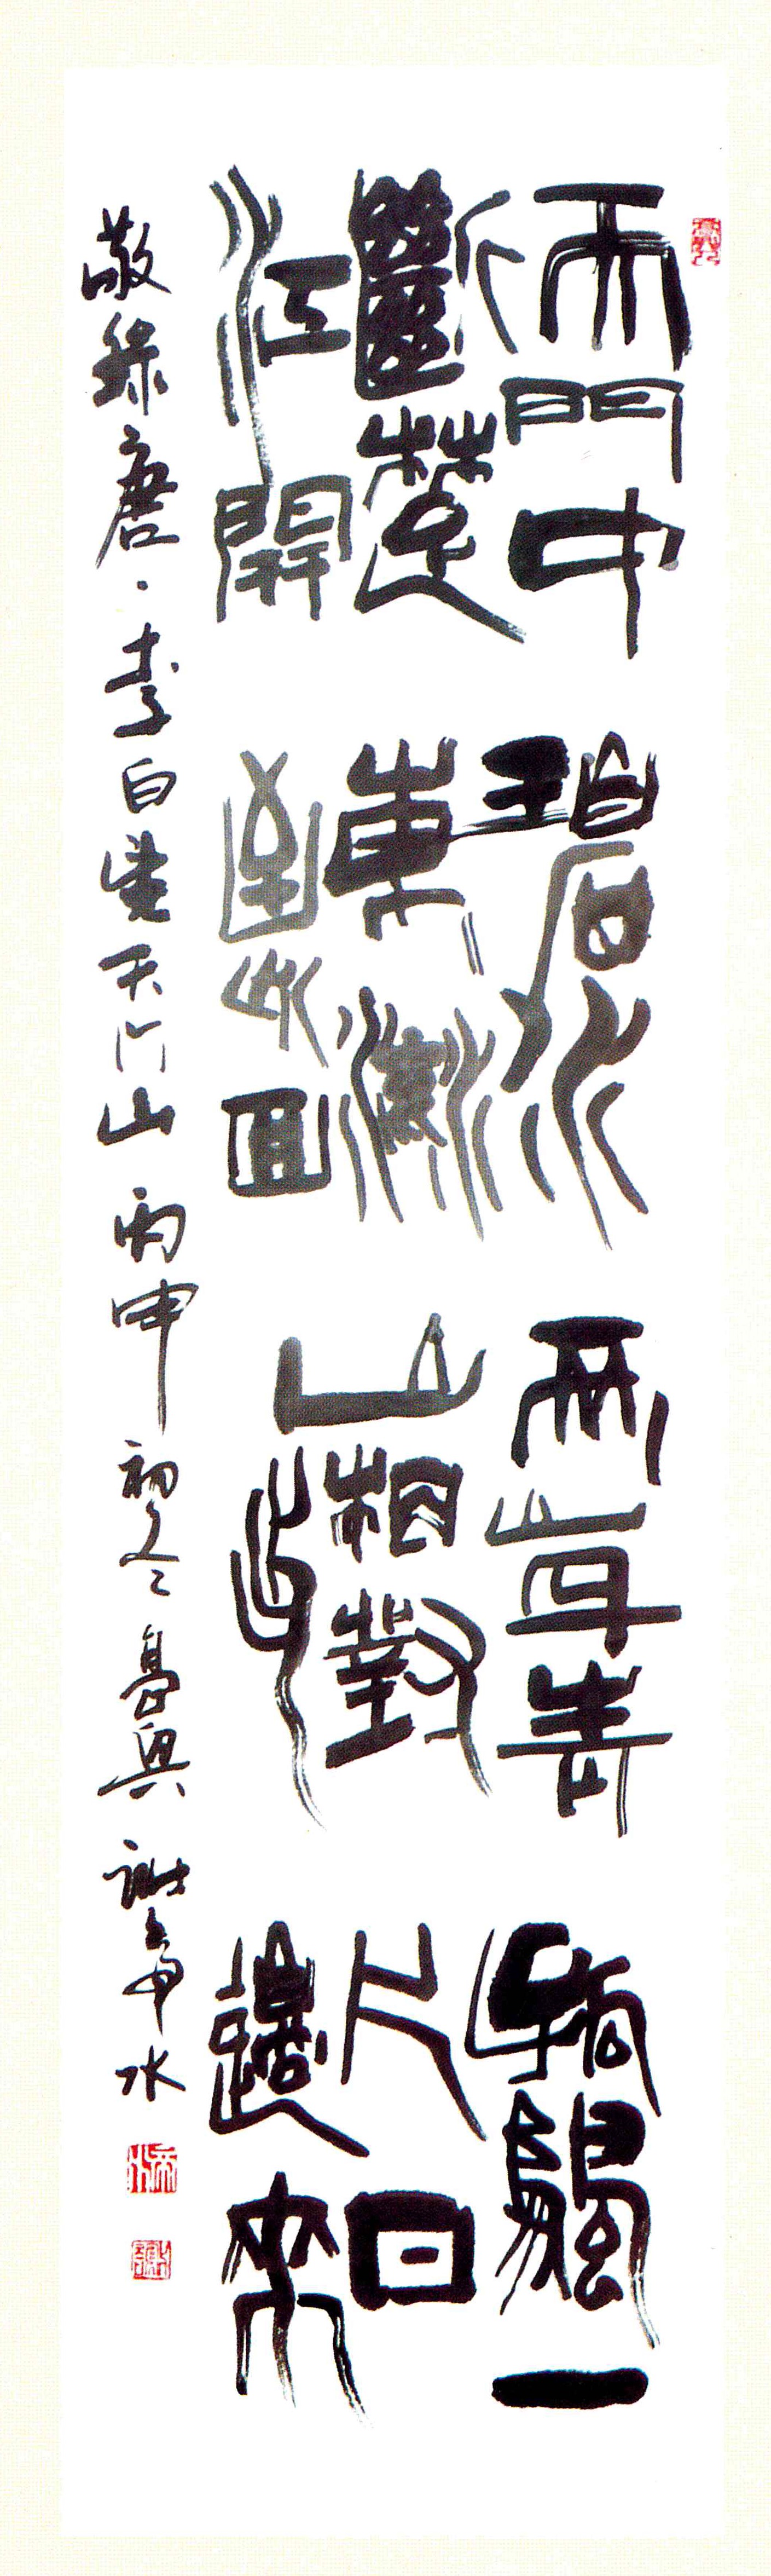 天門中
斷楚
江開
碧水
東流
至此回
兩岸青
山相對
出
孤帆一
片日
邊來
敬錄唐·李白望天门山 丙申初冬